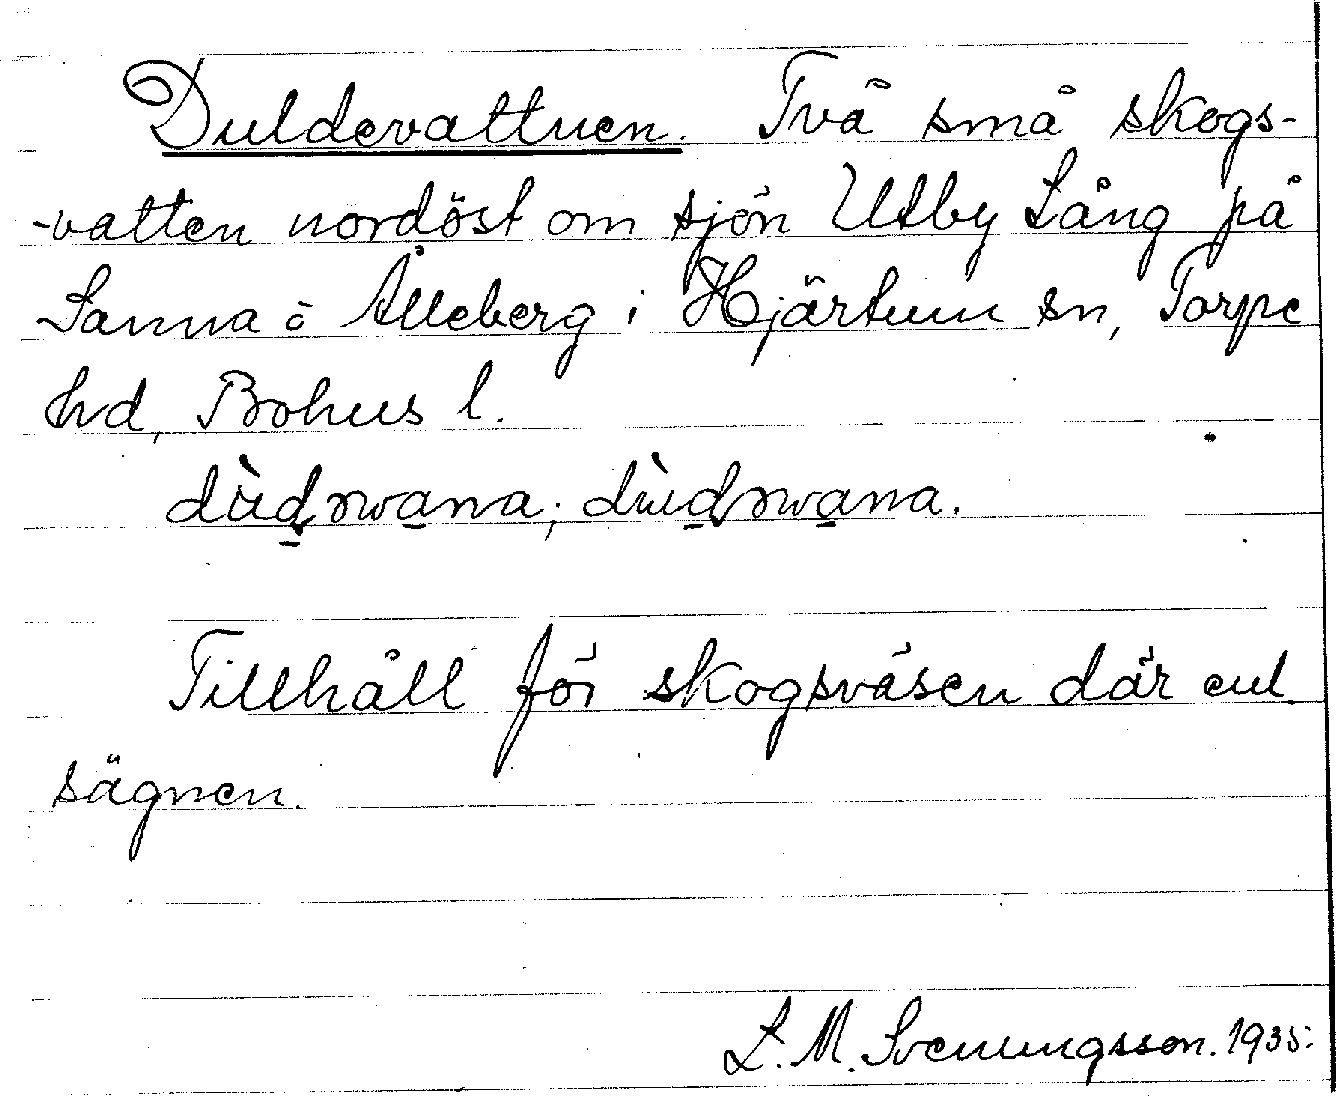 Duldevattnen. Två små skogs-
-vatten nordöst om sjön Utby Lång på
Sanna ö Ålleberg i Hjärtum sn, Torpe
hd, Bohus l.
Tillhåll för skogsväsen där enl
sägnen.
L. M. Svenungsson. 1935.